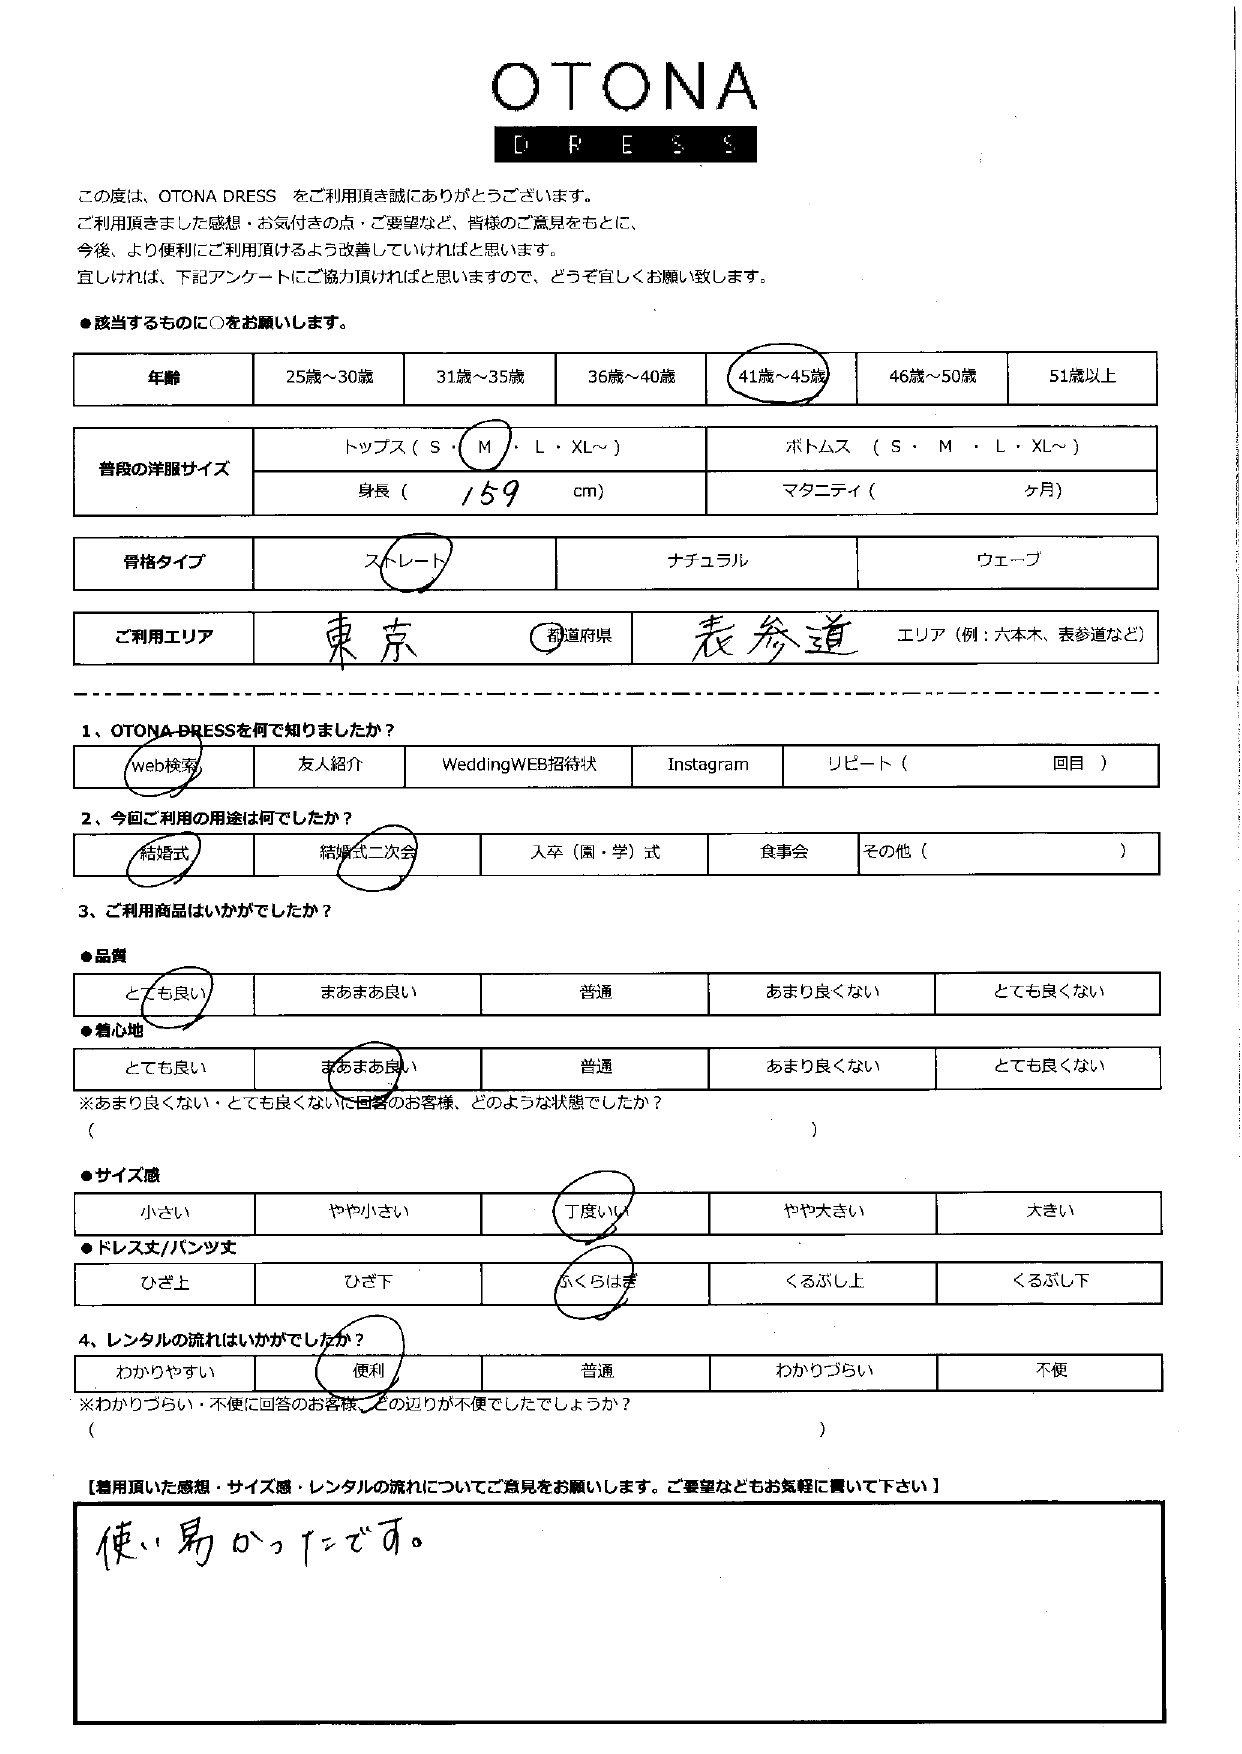 OTONA
DRESS
この度は、OTONA DRESS　をご利用頂き誠にありがとうございます。
ご利用頂きました感想・お気付きの点・ご要望など、皆様のご意見をもとに、
今後、より便利にご利用頂けるよう改善していければと思います。
宜しければ、下記アンケートにご協力頂ければと思いますので、どうぞ宜しくお願い致します。
●該当するものに○をお願いします。
年齢 25歳～30歳 31歳～35歳 36歳～40歳 41歳～45歳 46歳～50歳 51歳以上
普段の洋服サイズ トップス ( S ・ M ・ L ・ XL～ ) ボトムス ( S ・ M ・ L ・ XL～ )
身長 ( 159 cm) マタニティ ( ヶ月)
骨格タイプ ストレート ナチュラル ウェーブ
ご利用エリア 東京 都道府県 表参道 エリア（例：六本木、表参道など）
1、OTONA DRESSを何で知りましたか？
web検索 友人紹介 WeddingWEB招待状 Instagram リピート ( 回目 )
2、今回ご利用の用途は何でしたか？
結婚式 結婚式二次会 入卒（園・学）式 食事会 その他 ( )
3、ご利用商品はいかがでしたか？
●品質
とても良い まあまあ良い 普通 あまり良くない とても良くない
●着心地
とても良い まあまあ良い 普通 あまり良くない とても良くない
※あまり良くない・とても良くないに回答のお客様、どのような状態でしたか？
( )
●サイズ感
小さい やや小さい 丁度いい やや大きい 大きい
●ドレス丈/パンツ丈
ひざ上 ひざ下 ふくらはぎ くるぶし上 くるぶし下
4、レンタルの流れはいかがでしたか？
わかりやすい 便利 普通 わかりづらい 不便
※わかりづらい・不便に回答のお客様、どの辺りが不便でしたでしょうか？
( )
【着用頂いた感想・サイズ感・レンタルの流れについてご意見をお願いします。ご要望などもお気軽に書いて下さい】
使い易かったです。